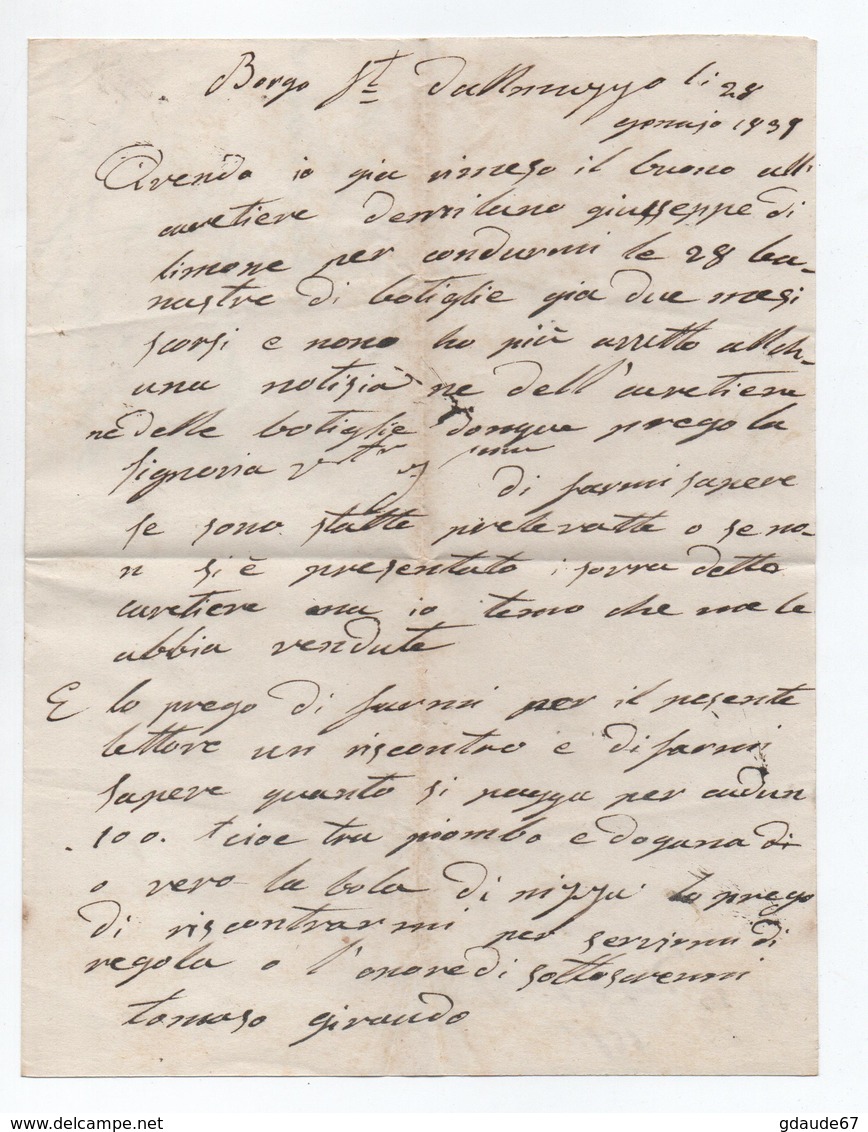 Borgo St Dallmuzzo li 28
genajo 1839
Avendo io gia rimeso il buono all
caretiere Dermilano giusseppe di
limone per condurmi le 28 ba-
nastre di botiglie gia due mesi
scorsi e nono ho più auutto allch-
una notisia ne dell'caretiere
ne delle botiglie donque prego la
signoria di farmi sapere
se sono statte prelevatte o se no-
n si è presentato i sovra detto
caretiere ma io temo che me le
abbia vendute
E lo prego di farmi per il presente
lettore un riscontro e di farmi
sapere quanto si pagga per cadun
100. cioe tra piombo e dogana di
o vero la bola di nizza lo prego
di riscontrarmi per servirmi di
regola o l'onore di sottoscrermi
tomaso giraudo
delcampe.net
gdaude67